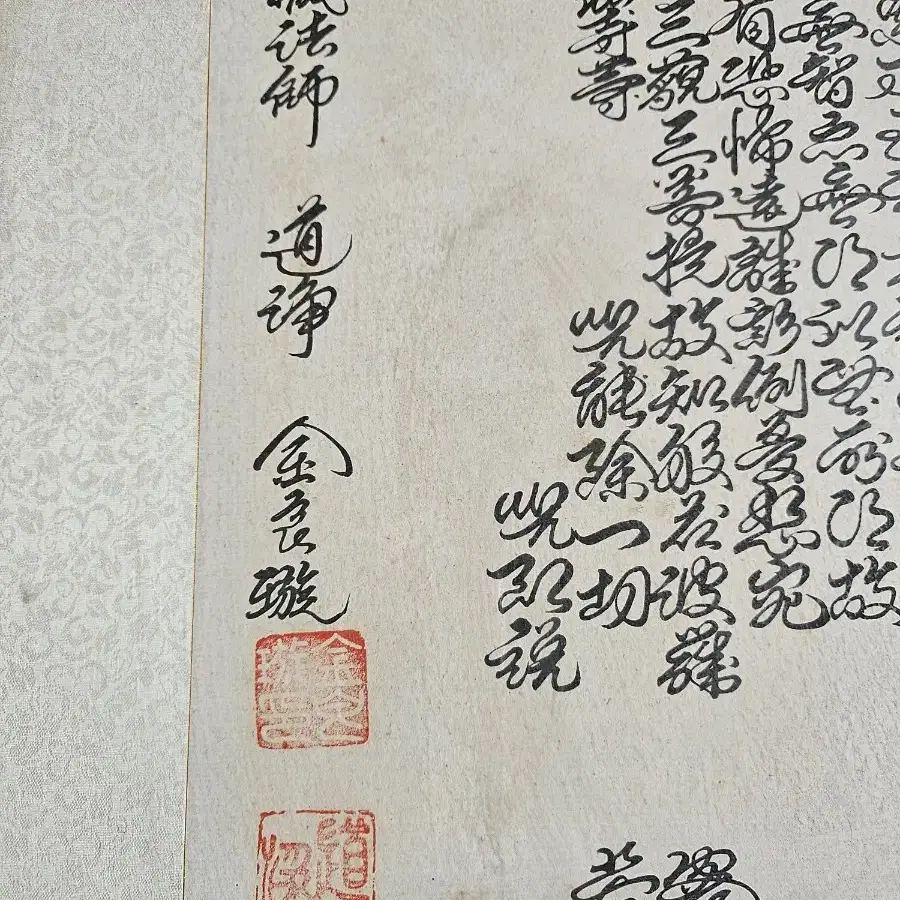 無智亦無得以無所得故
有恐怖遠離顛倒夢想究
三藐三菩提故知般若波羅
等等
咒能除一切
咒即說
藏法師 道淨 金良璇